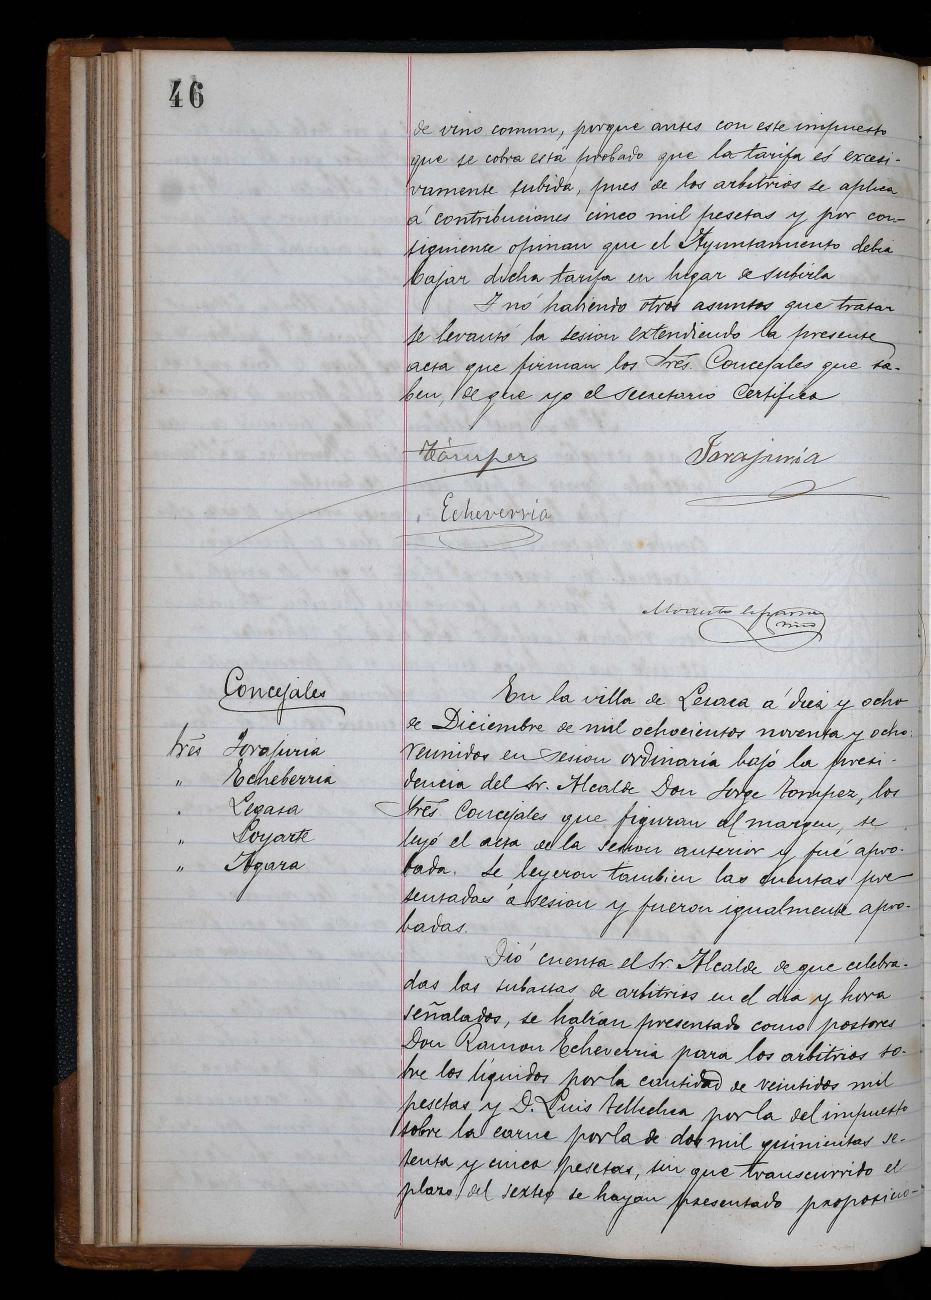 46
de vino comun, porque antes con este impuesto
que se cobra está probado que la tarifa es excesi-
vamente subida, pues de los arbitrios se aplica
á contribuciones cinco mil pesetas y por con-
siguiente opinan que el Ayuntamiento debia
bajar dicha tarifa en lugar de subirla
Y nó habiendo otros asuntos que tratar
se levantó la sesion extendiendo la presente
acta que firman los Sres. Concejales que sa-
ben, de que yo el Secretario Certifico
Echeverria
Concejales
En la villa de Lesaca á diez y ocho
de Diciembre de mil ochocientos noventa y ocho:
Sres Jorajuria
reunidos en sesion ordinaria bajó la presi-
„ Echeberria
dencia del Sr. Alcalde Don Jorge Tompez, los
„ Legasa
Sres Concejales que figuran al margen, se
„ Loyarte
leyó el acta de la sesion anterior y fué apro-
„ Agara
bada. Se leyeron tambien las cuentas pre-
sentadas á sesion y fueron igualmente apro-
badas.
Dió cuenta el Sr Alcalde de que celebra-
das las subastas de arbitrios en el dia y hora
señalados, se habían presentado como postores
Don Ramon Echeverria para los arbitrios so-
bre los líquidos por la cantidad de veintidos mil
pesetas y D. Luis Tellechea por la del impuesto
sobre la carne por la de dos mil quinientas se-
tenta y cinco pesetas, sin que transcurrido el
plazo del sexteo se hayan presentado proposicio-